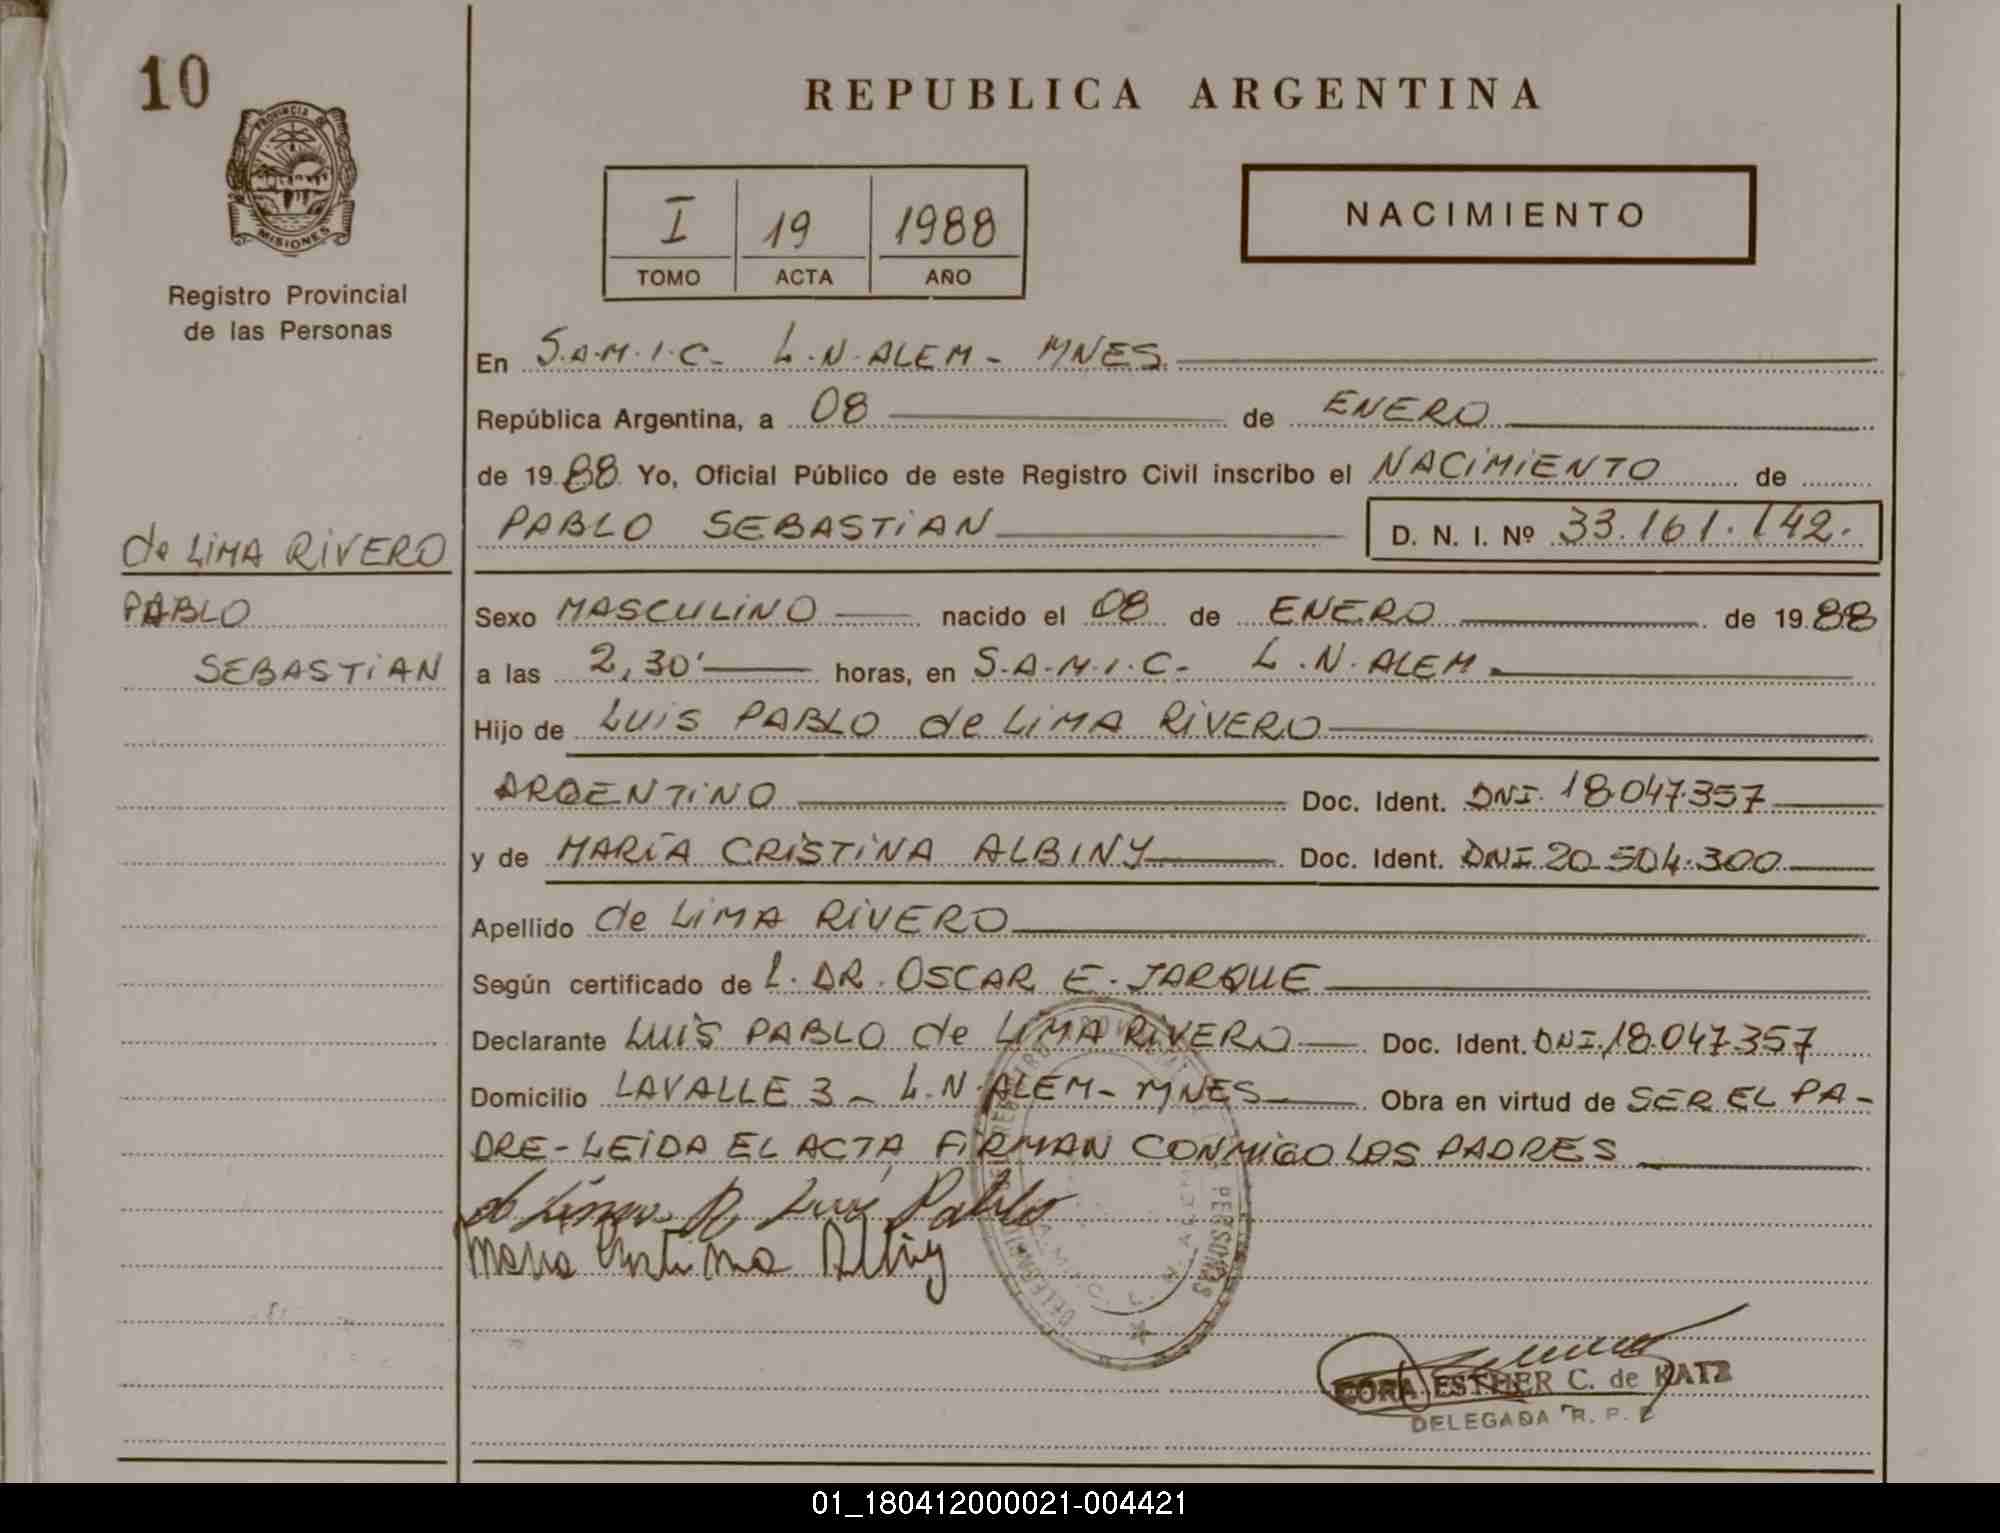 10
PROVINCIA DE
MISIONES
Registro Provincial
de las Personas
REPUBLICA ARGENTINA
I 19 1988
TOMO ACTA AÑO
NACIMIENTO
En S.A.M.I.C- L.N.ALEM- MNES.
República Argentina, a 08 de ENERO
de 1988 Yo, Oficial Público de este Registro Civil inscribo el NACIMIENTO de
PABLO SEBASTIAN D. N. I. Nº 33.161.142.
de LIMA RIVERO
PABLO
SEBASTIAN
Sexo MASCULINO nacido el 08 de ENERO de 1988
a las 2,30' horas, en S.A.M.I.C- L.N.ALEM.
Hijo de LUIS PABLO de LIMA RIVERO
ARGENTINO Doc. Ident. DNI. 18.047.357
y de MARÍA CRISTINA ALBINY Doc. Ident. DNI 20.504.300
Apellido de LIMA RIVERO
Según certificado de L. DR. OSCAR E. JARQUE
Declarante LUIS PABLO de LIMA RIVERO Doc. Ident. DNI.18.047.357
Domicilio LAVALLE 3- L.N.ALEM- MNES Obra en virtud de SER EL PA-
DRE-LEIDA EL ACTA FIRMAN CONMIGO LOS PADRES
de Lima R. Luis Pablo
Maria Cristina Albiny
PERSONAS
CORA ESTHER C. de KATZ
DELEGADA R. P. P
01_180412000021-004421